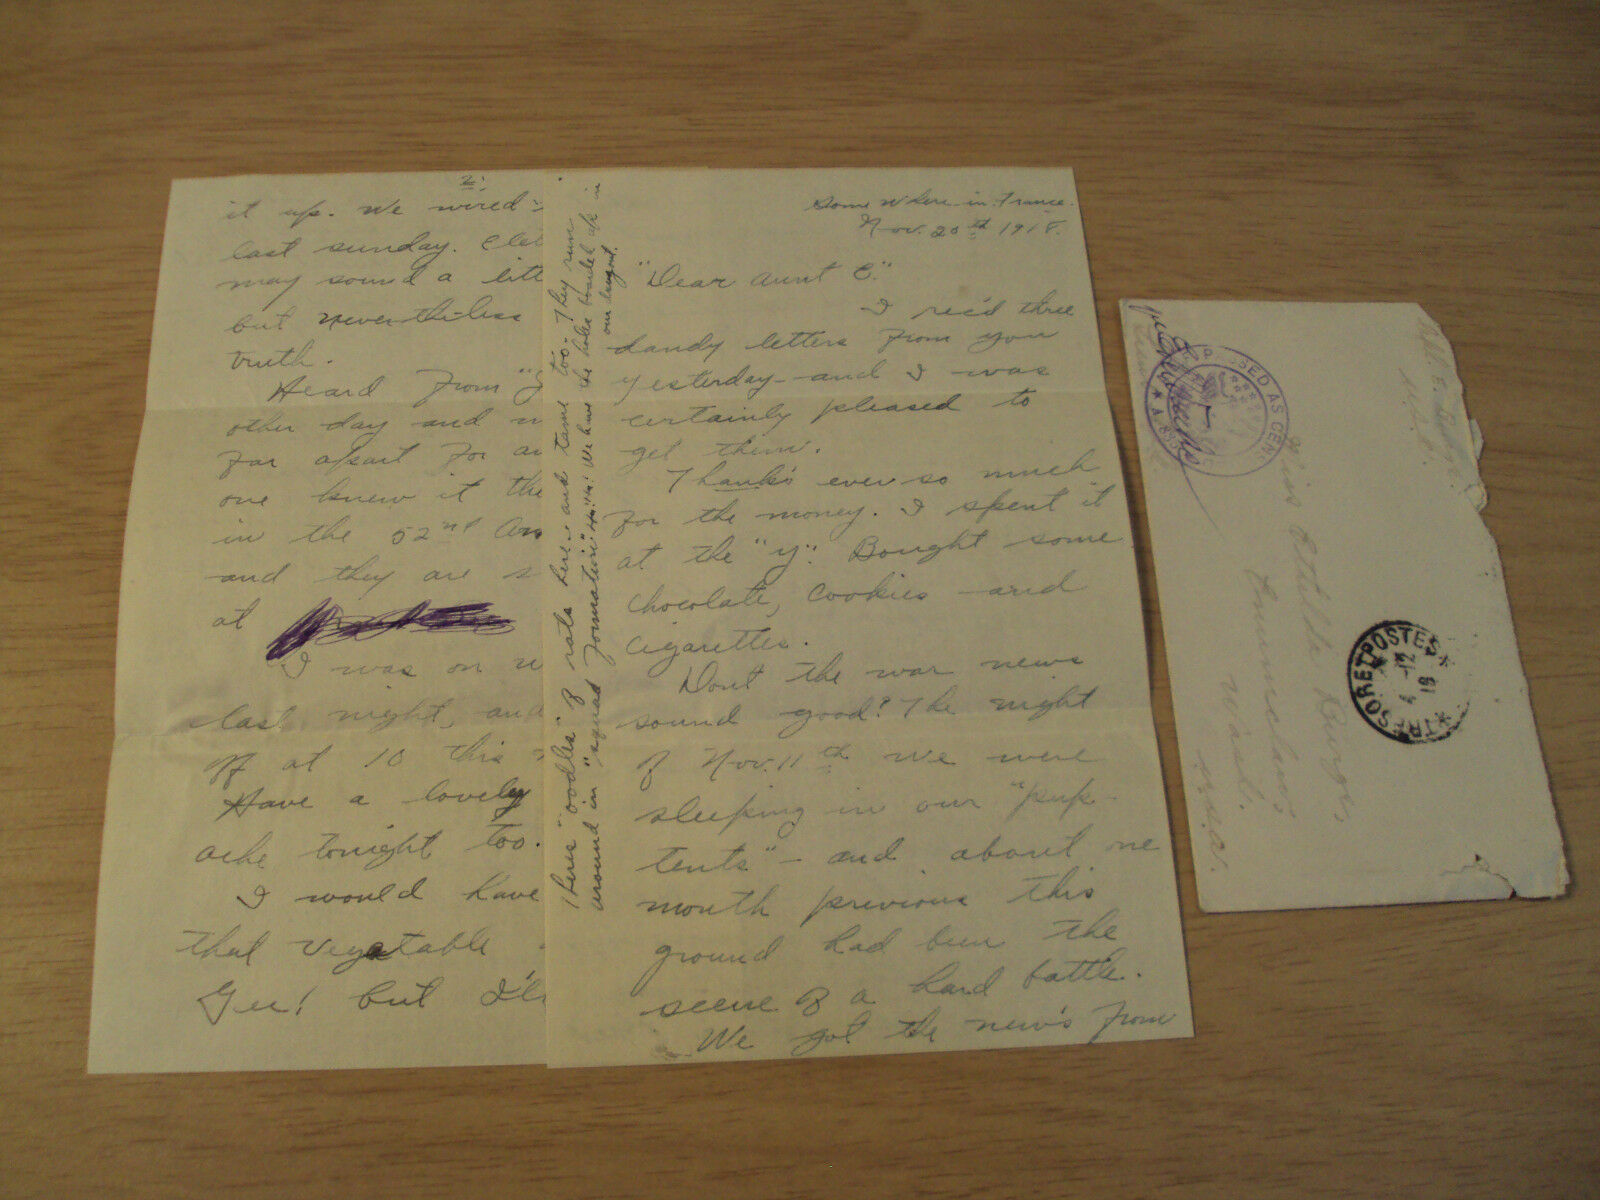 Some where in France.
Nov. 20th 1918.
"Dear Aunt E."
I rec'd three
dandy letters from you
yesterday - and I was
certainly pleased to
get them.
Thanks ever so much
for the money. I spent it
at the "Y". Bought some
chocolate, cookies and
cigarettes.
Dont the war news
sound good? The night
of Nov. 11th we were
sleeping in our "pup-
tents" - and about one
month previous this
ground had been the
scene of a hard battle.
We got the new's from
theres "oodles" of rats here - and tame too. They run
around in "squad formation" We have the holes boarded up in
our
2.
it up. We wired
last sunday.
may sound a litt
but never-the-less
truth.
Heard from
other day and
far apart for
one knew it the
in the 52nd Am
and they are s
at
I was on
last night, and
off at 10 this
Have a lovely
ache tonight too.
I would have
that vegatable
Gee! but I'll
PASSED AS CENSORED
A.
Miss Ethilda Burgor,
Enumclaw,
Wash.
U.S.A.
TRESOR ET POSTES
4 -12
18